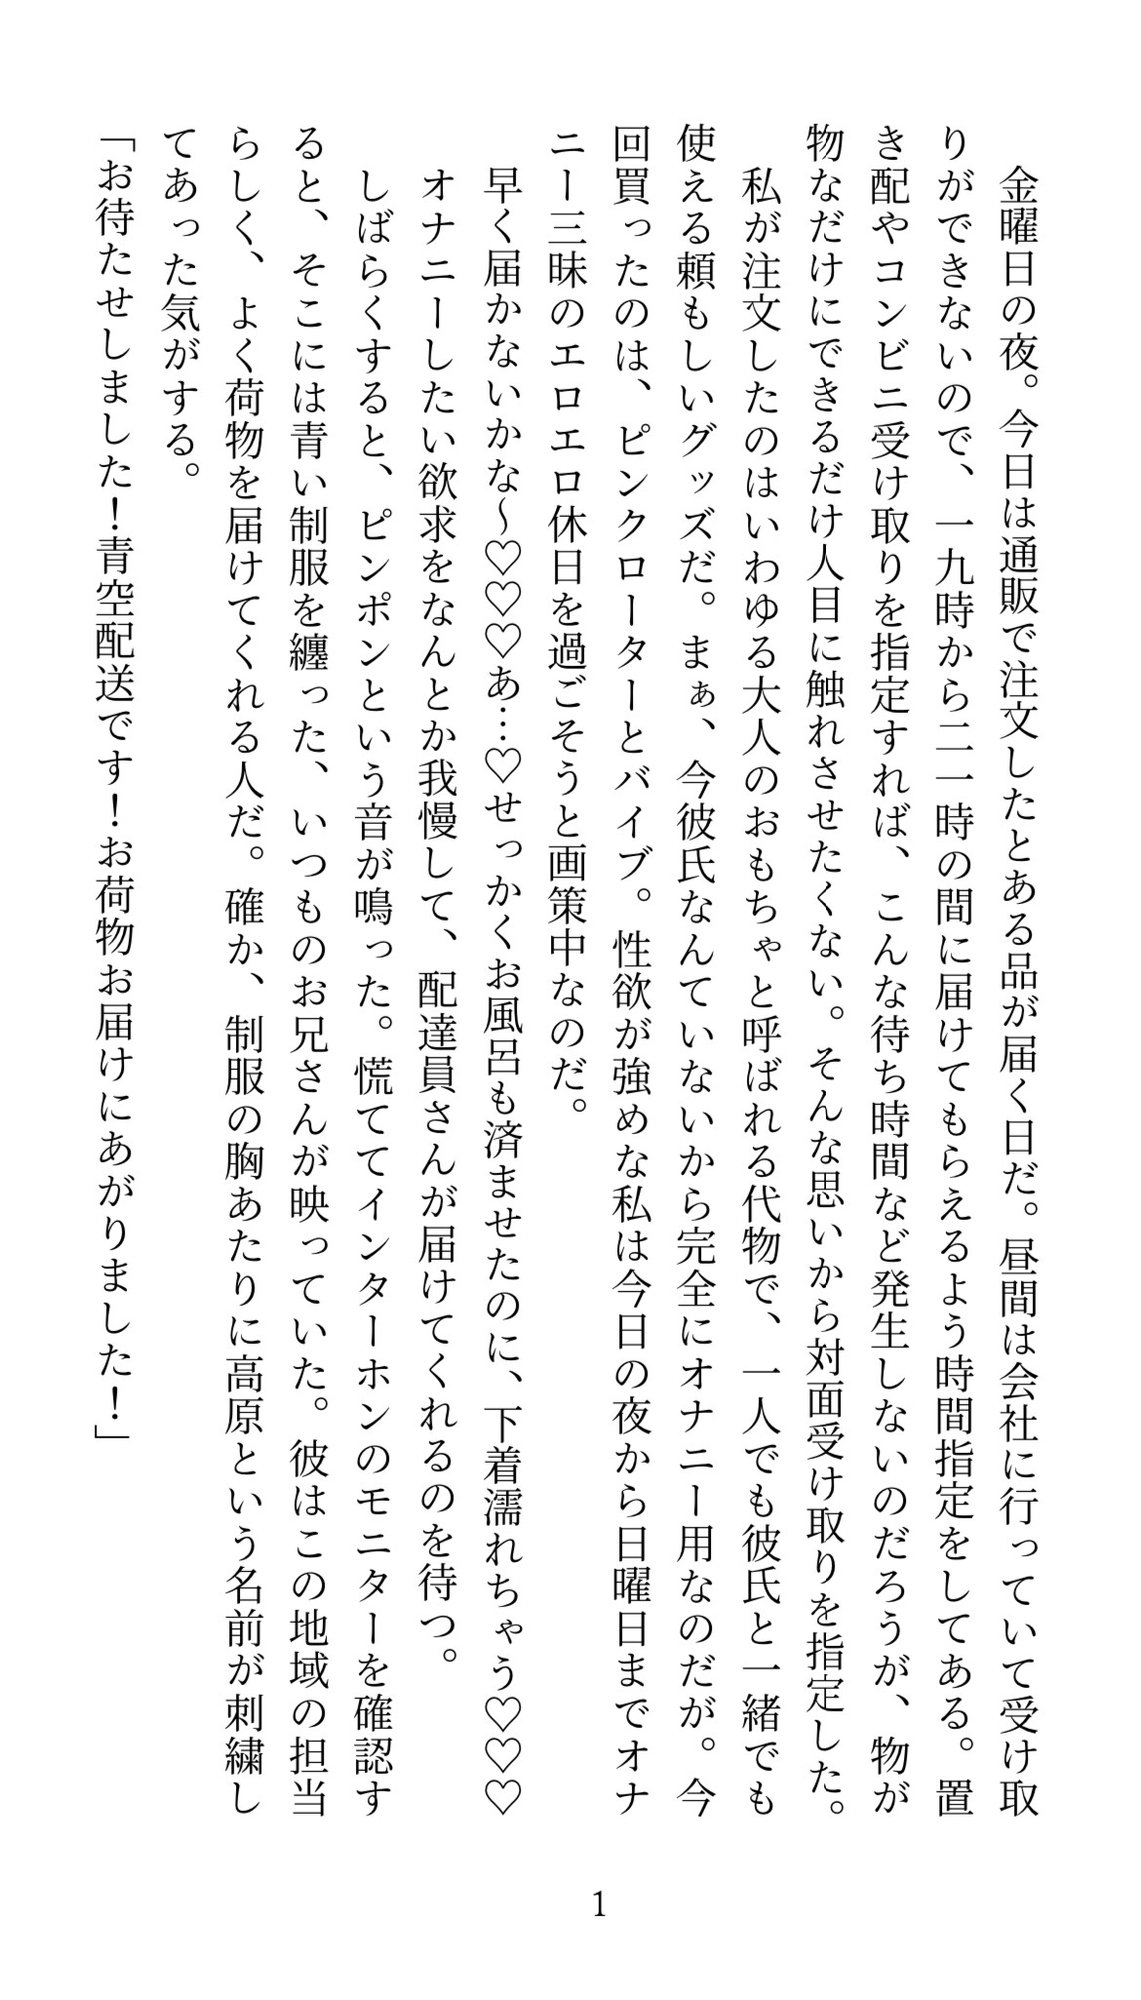 金曜日の夜。今日は通販で注文したとある品が届く日だ。昼間は会社に行っていて受け取
りができないので、一九時から二一時の間に届けてもらえるよう時間指定をしてある。置
き配やコンビニ受け取りを指定すれば、こんな待ち時間など発生しないのだろうが、物が
物なだけにできるだけ人目に触れさせたくない。そんな思いから対面受け取りを指定した。
私が注文したのはいわゆる大人のおもちゃと呼ばれる代物で、一人でも彼氏と一緒でも
使える頼もしいグッズだ。まぁ、今彼氏なんていないから完全にオナニー用なのだが。今
回買ったのは、ピンクローターとバイブ。性欲が強めな私は今日の夜から日曜日までオナ
ニー三昧のエロエロ休日を過ごそうと画策中なのだ。
早く届かないかな～♡♡♡あ…♡せっかくお風呂も済ませたのに、下着濡れちゃう♡♡♡
オナニーしたい欲求をなんとか我慢して、配達員さんが届けてくれるのを待つ。
しばらくすると、ピンポンという音が鳴った。慌ててインターホンのモニターを確認す
ると、そこには青い制服を纏った、いつものお兄さんが映っていた。彼はこの地域の担当
らしく、よく荷物を届けてくれる人だ。確か、制服の胸あたりに高原という名前が刺繍し
てあった気がする。
「お待たせしました！青空配送です！お荷物お届けにあがりました！」
1